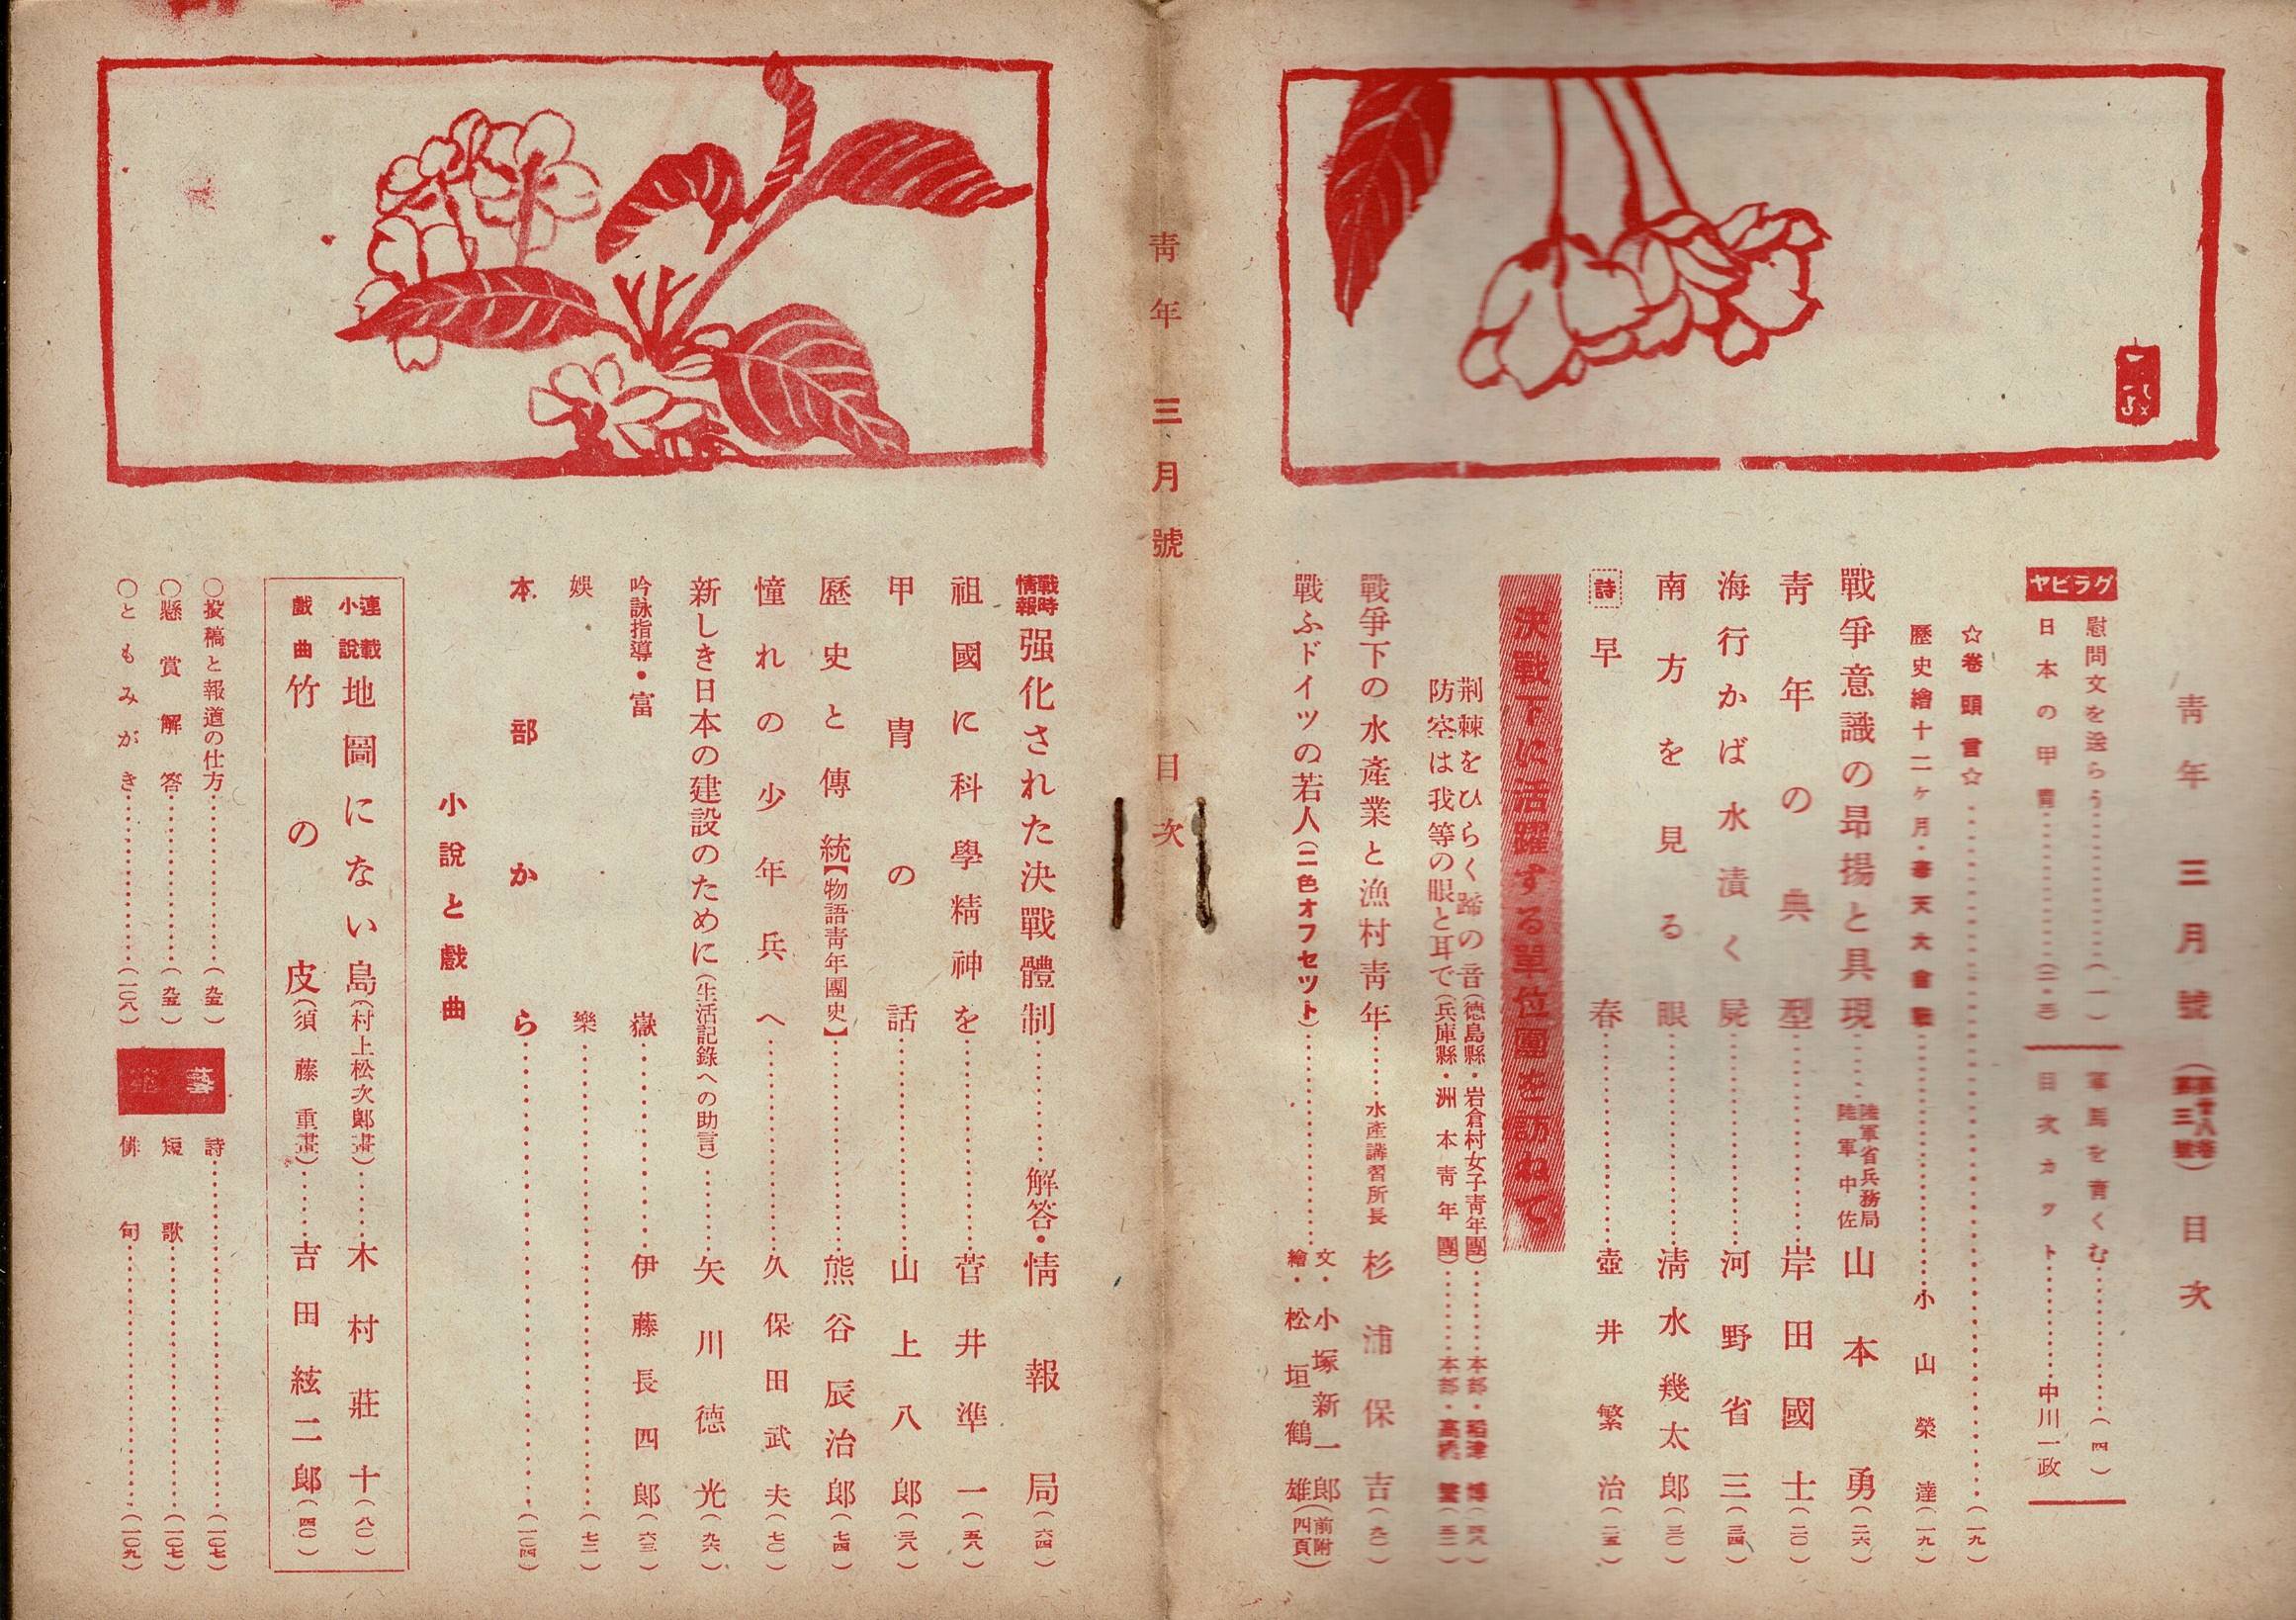 靑年 三月號 目次
グラビヤ
慰問文を送らう(一)
日本の甲冑
軍馬を書くむ(四)
目次カット 中川一政
☆卷頭言☆(一九)
歷史繪十二ヶ月・ 小山榮達(一九)
戰爭意識の昂揚と具現 陸軍省兵務局 陸軍中佐 山本勇(二六)
靑年の典型 岸田國士(二〇)
海行かば水漬く屍 河野省三(三四)
南方を見る眼 淸水幾太郎(三〇)
詩 早春 壺井繁治(二五)
決戰下に活躍する單位團を訪ねて
荆棘をひらく蹄の音(德島縣・岩倉村女子靑年團) 本部・稻津博
防空は我等の眼と耳で(兵庫縣・洲本靑年團) 本部・高橋
戰爭下の水產業と漁村靑年 水產講習所長 杉浦保吉(九〇)
戰ふドイツの若人(二色オフセット) 文・小塚新一郎 繪・松垣鶴雄(前附四頁)
靑年 三月號 目次
戰時情報 强化された決戰體制 解答・情報局(六四)
祖國に科學精神を 菅井準一(五八)
甲冑の話 山上八郎(三八)
歷史と傳統【物語靑年團史】 熊谷辰治郎(七四)
憧れの少年兵へ 久保田武夫(七〇)
新しき日本の建設のために(生活記錄への助言) 矢川德光(九六)
吟詠指導・富嶽 伊藤長四郎(六三)
娛樂(七二)
本部から(一〇四)
小說と戲曲
連載小說 地圖にない島(村上松次郞畫) 木村莊十(八〇)
戲曲 竹の皮(須藤重畫) 吉田絃二郎(四〇)
○投稿と報道の仕方(九五)
○懸賞解答(九五)
○ともみがき(一〇八)
詩(一〇七)
短歌(一〇七)
俳句(一〇九)